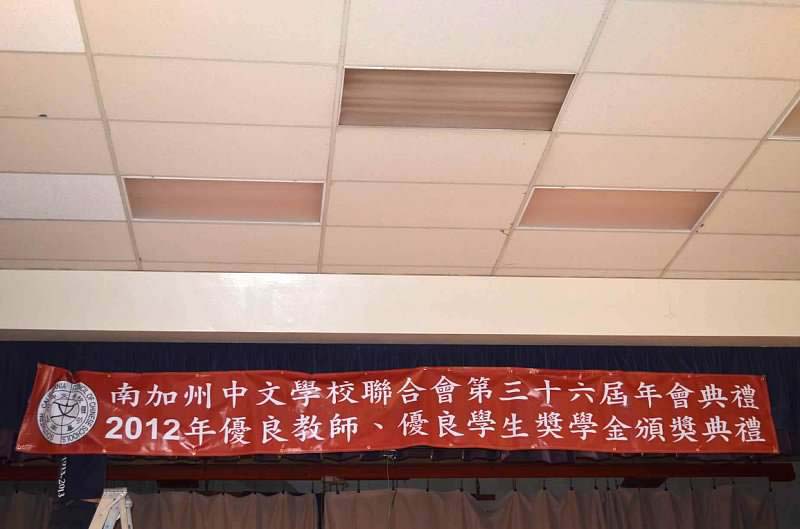 南加州中文學校聯合會第三十六屆年會典禮
2012年優良教師、優良學生獎學金頒獎典禮